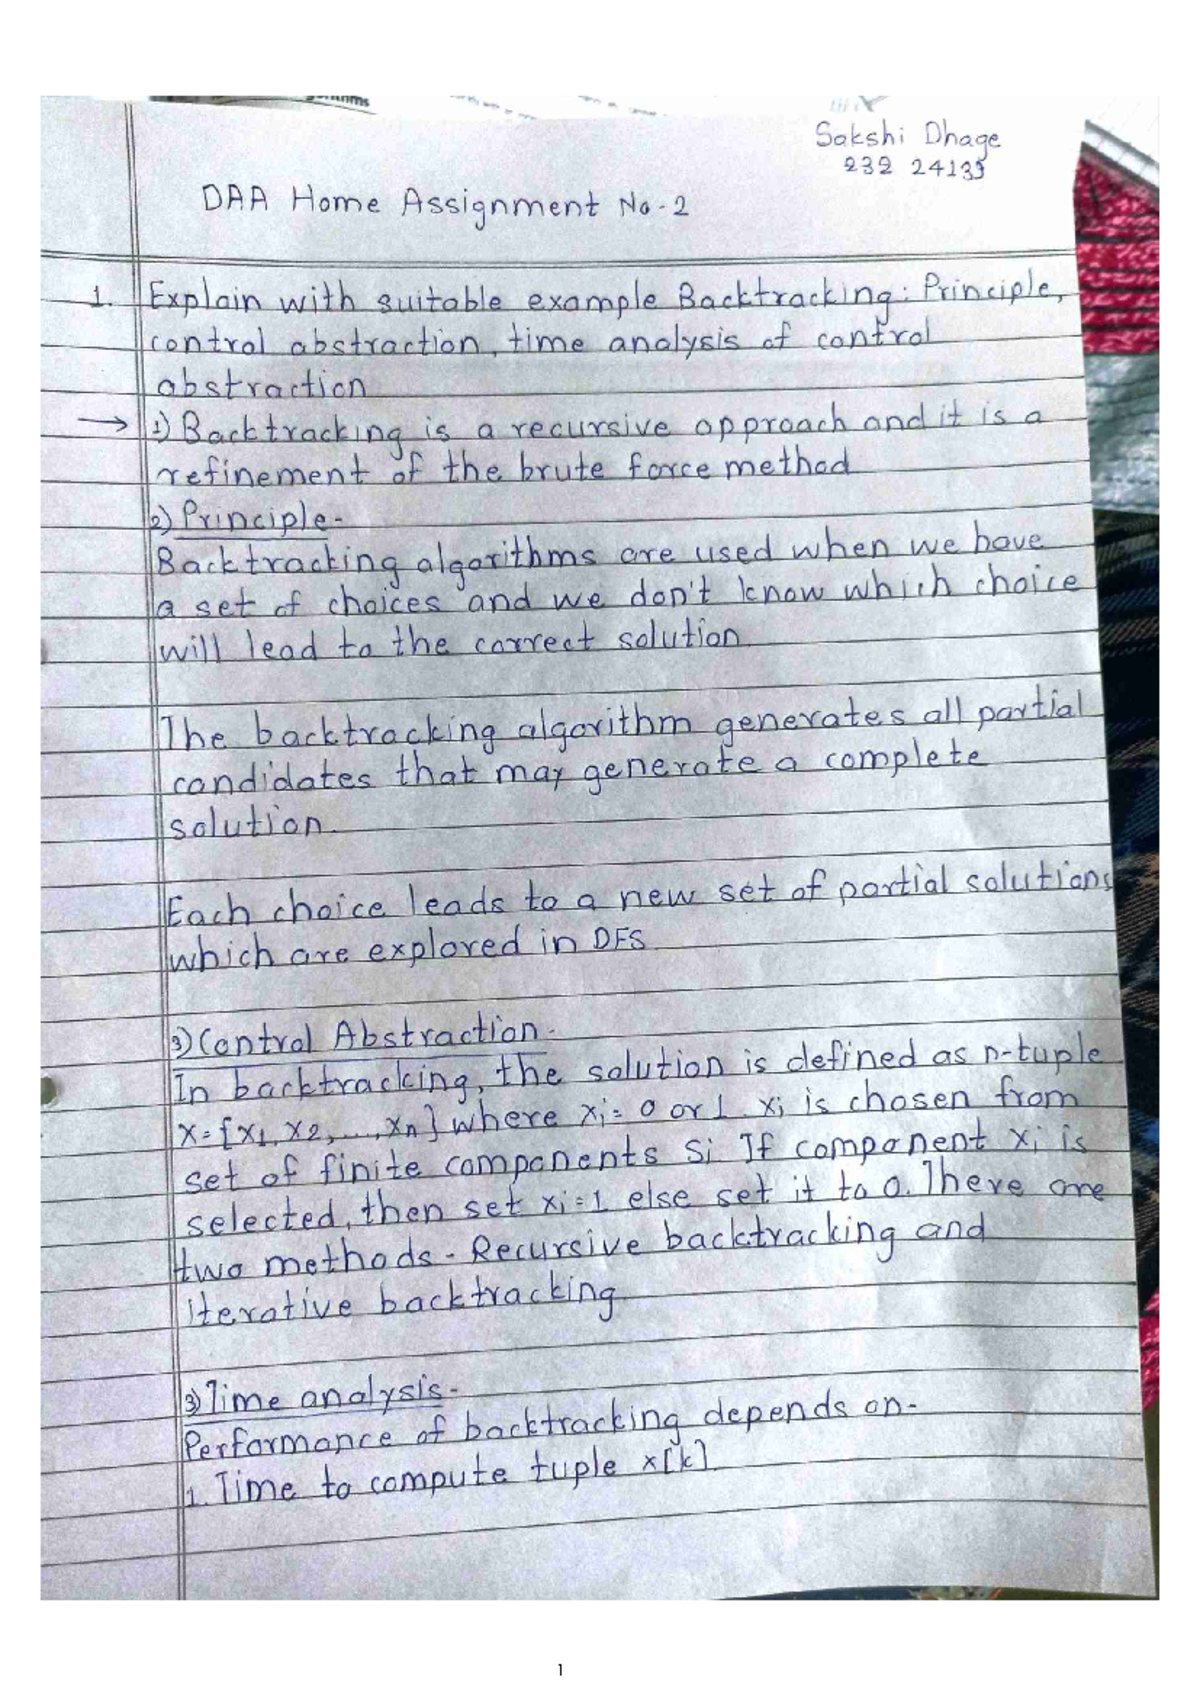 Sakshi Dhage
232 24139
DAA Home Assignment No-2
1. Explain with suitable example Backtracking: Principle,
control abstraction, time analysis of control
abstraction
→ 1) Backtracking is a recursive approach and it is a
refinement of the brute force method
2) Principle-
Backtracking algorithms are used when we have
a set of choices and we don't know which choice
will lead to the correct solution.
The backtracking algorithm generates all partial
candidates that may generate a complete
solution.
Each choice leads to a new set of partial solutions
which are explored in DFS.
3) Control Abstraction-
In backtracking, the solution is defined as n-tuple
X={x1, x2, ..., xn} where xi= 0 or 1. xi is chosen from
set of finite components Si If component xi is
selected, then set xi=1 else set it to 0. There are
two methods - Recursive backtracking and
iterative backtracking
3) Time analysis-
Performance of backtracking depends on-
1. Time to compute tuple x[k].
1